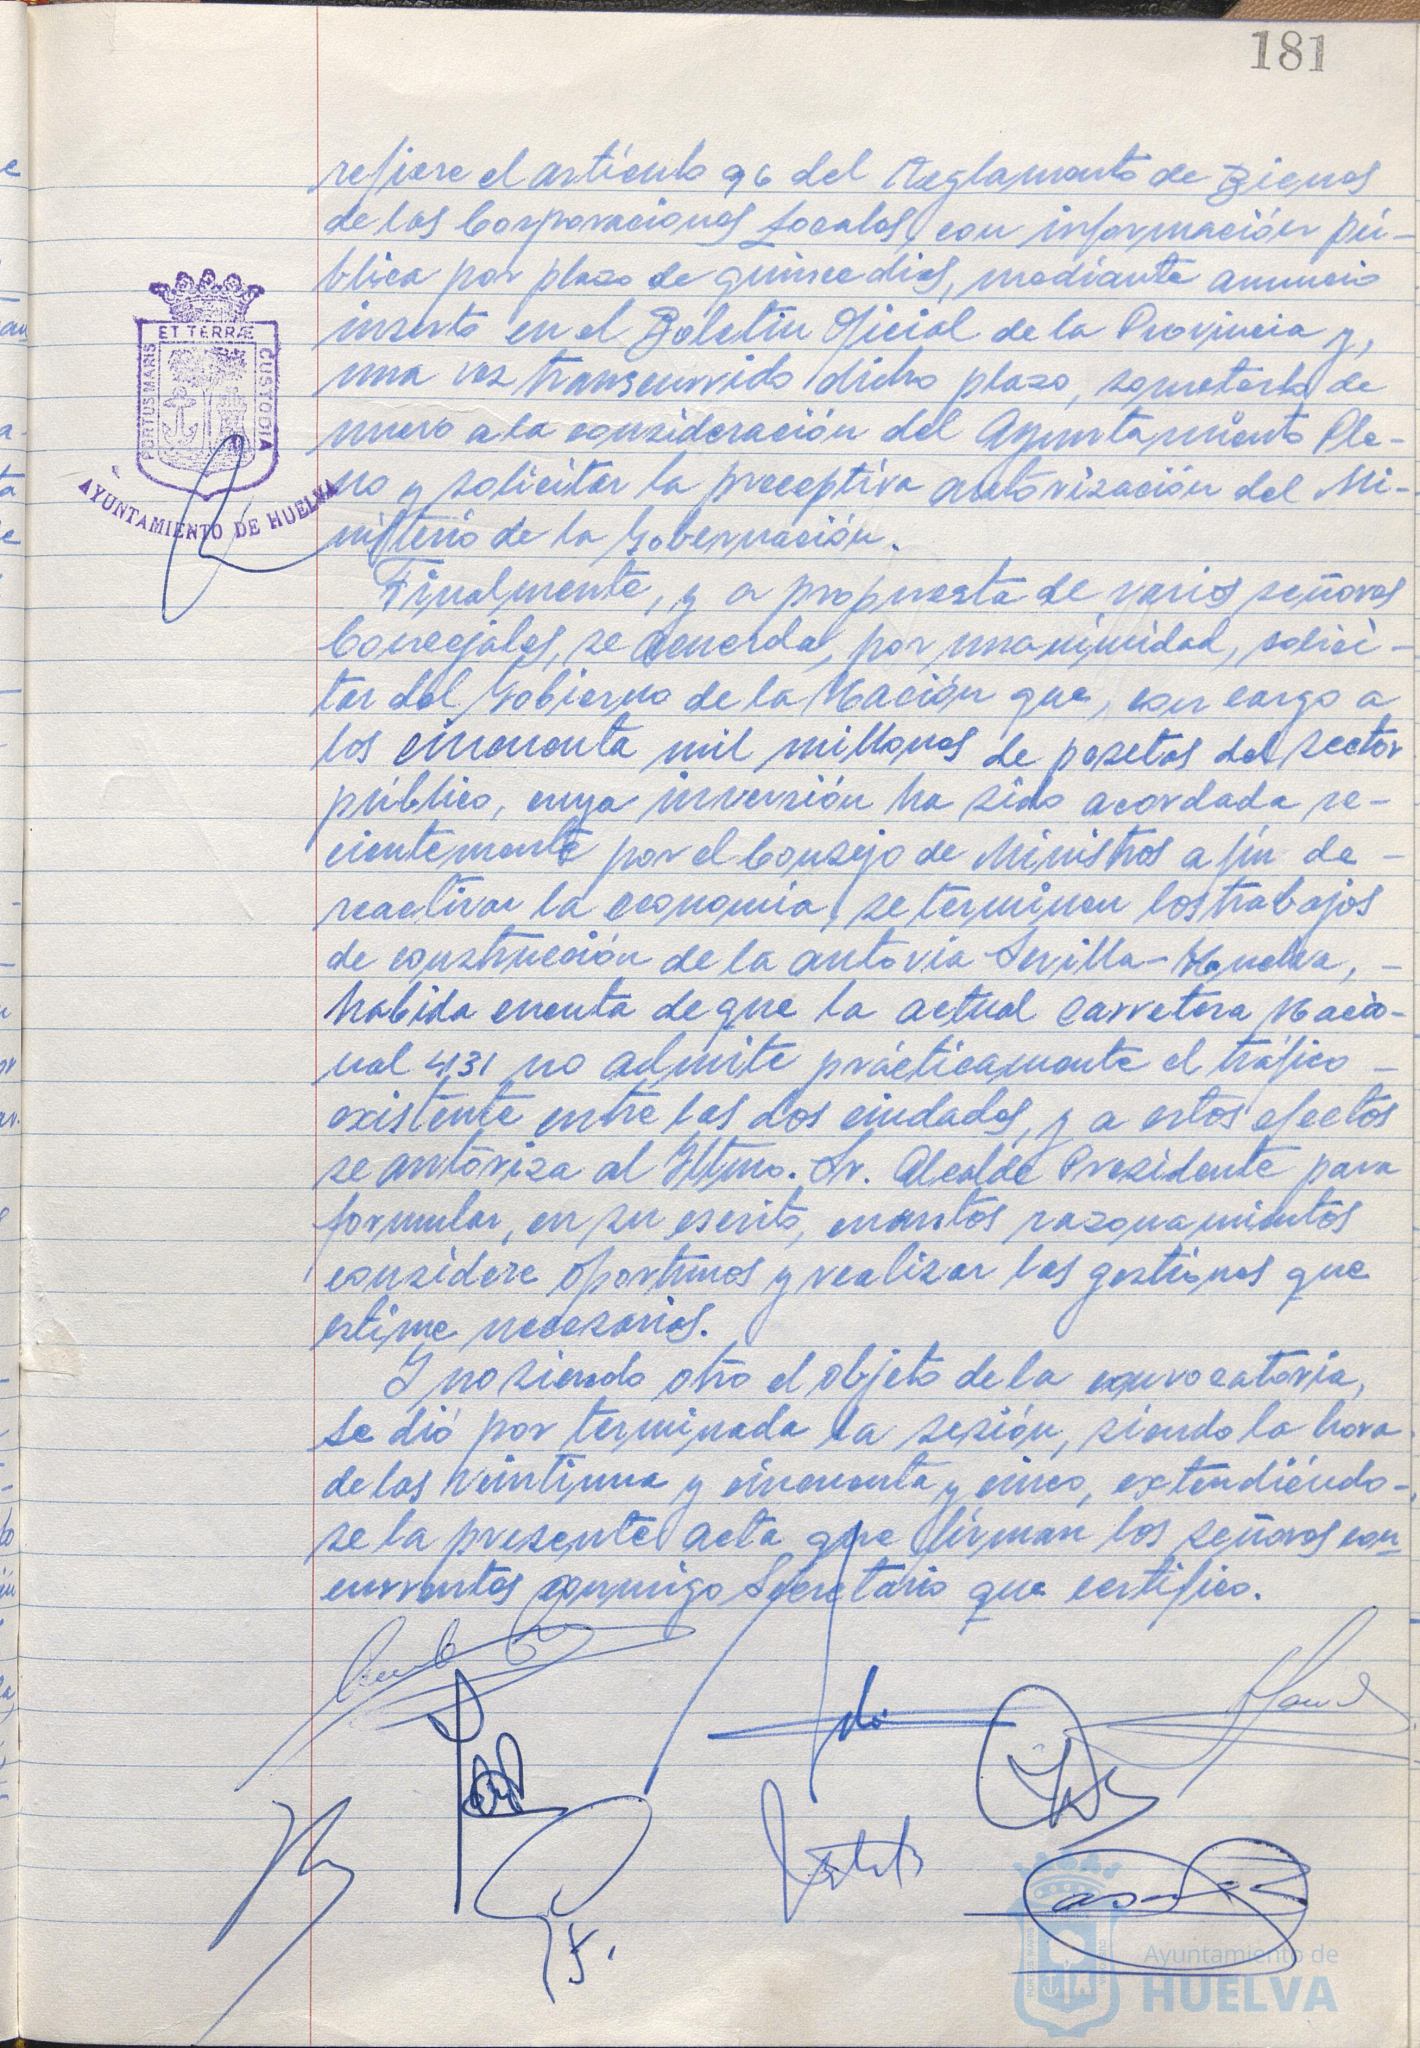 181
refiere el artículo 96 del Reglamento de Bienes
de las Corporaciones Locales, con información pú-
blica por plazo de quince dias, mediante anuncio
inserto en el Boletín Oficial de la Provincia y,
una vez transcurrido dicho plazo, someterlo de
nuevo a la consideración del Ayuntamiento Ple-
no y solicitar la preceptiva autorización del Mi-
nisterio de la Gobernación.
Finalmente, y a propuesta de varios señores
Concejales, se acuerda, por unanimidad, solici-
tar del Gobierno de la Nación que, con cargo a
los cincuenta mil millones de pesetas del sector
público, cuya inversión ha sido acordada re-
cientemente por el Consejo de Ministros a fin de -
reactivar la economía, se terminen los trabajos
de construcción de la autovia Sevilla-Huelva, -
habida cuenta de que la actual carretera Nacio-
nal 431 no admite prácticamente el tráfico -
existente entre las dos ciudades, y a estos efectos
se autoriza al Iltmo. Sr. Alcalde Presidente para
formular, en su escrito, cuantos razonamientos
considere oportunos y realizar las gestiones que
estime necesarias.
Y no siendo otro el objeto de la convocatoria,
se dió por terminada la sesión, siendo la hora
de las veintiuna y cincuenta y cinco, extendiéndo-
se la presente acta que firman los señores con-
currentes conmigo Secretario que certifico.
ET TERRÆ
PORTUS MARIS
CUSTODIA
AYUNTAMIENTO DE HUELVA
Ayuntamiento de
HUELVA